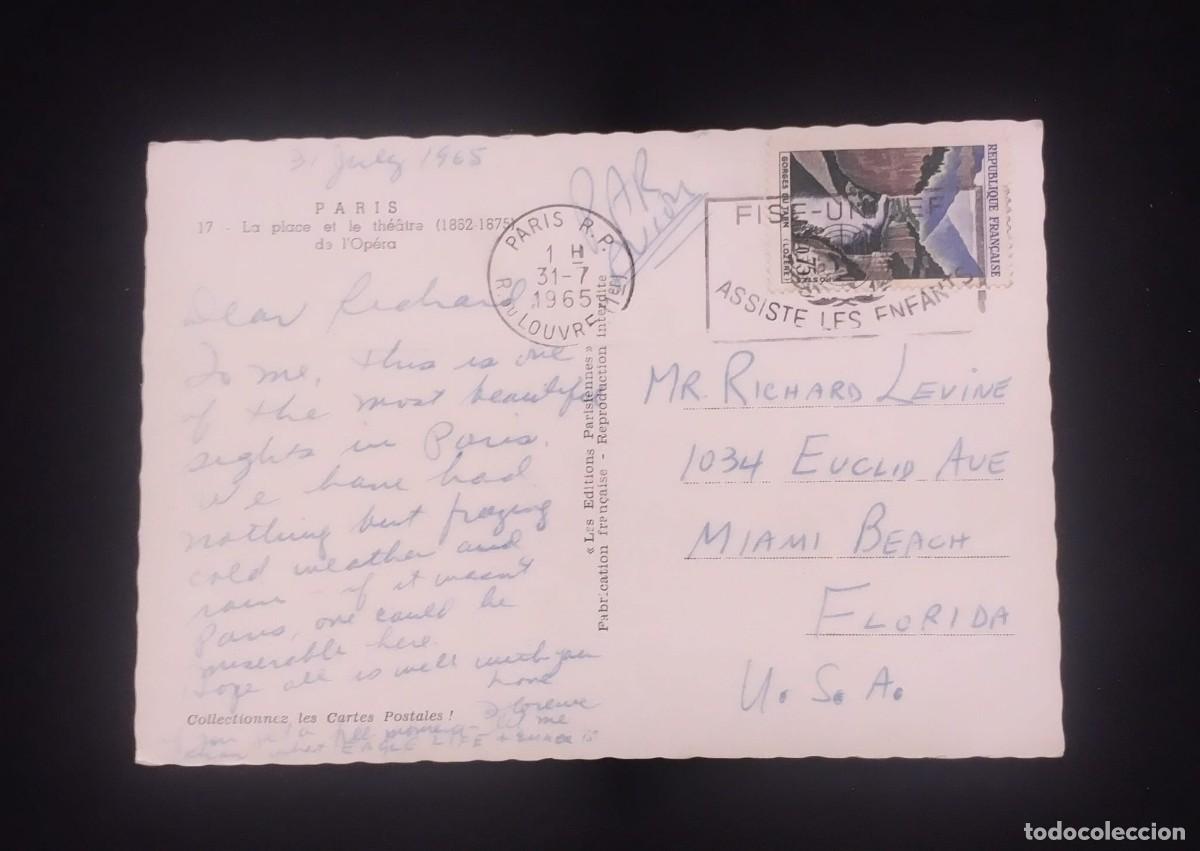 31 July 1965
PARIS
17 - La place et le théâtre (1862-1875)
de l'Opéra
Dear Richard
To me, this is one
of the most beautiful
sights in Paris.
We have had
nothing but freezing
cold weather and
rain - if it wasn't
Paris, one could be
miserable here.
Hope all is well with you
Love
Florence
Collectionnez les Cartes Postales !
let me
what EAGLE LIFE
«Les Editions Parisiennes»
Fabrication française - Reproduction interdite
PAR
Avion
PARIS R.P.
1 H
31-7
1965
R. du LOUVRE (1er)
FISE-UNICEF
ASSISTE LES ENFANTS
REPUBLIQUE FRANÇAISE
GORGES DU TARN (LOZÈRE)
0,75
MR. RICHARD LEVINE
1034 EUCLID AVE
MIAMI BEACH
FLORIDA
U.S.A.
todocoleccion